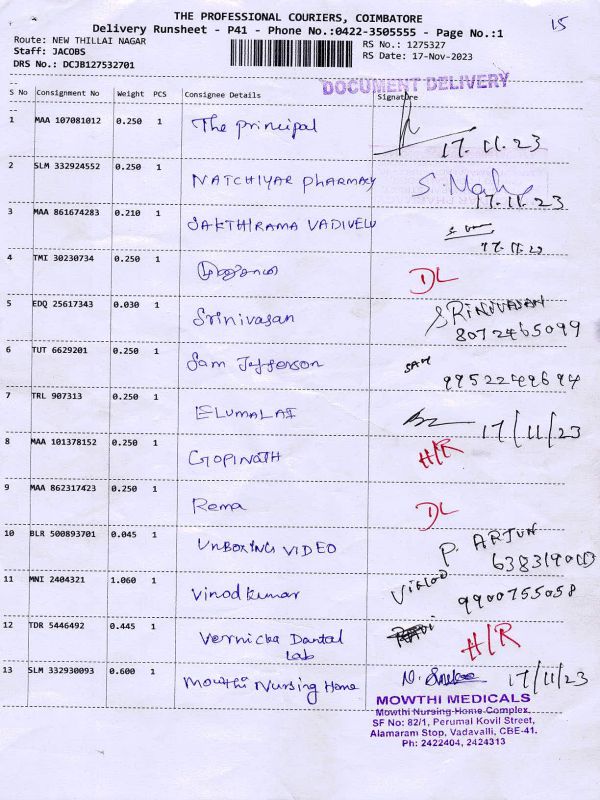 THE PROFESSIONAL COURIERS, COIMBATORE
15
Delivery Runsheet - P41 - Phone No.:0422-3505555 - Page No.:1
Route: NEW THILLAI NAGAR
RS No.: 1275327
Staff: JACOBS
RS Date: 17-Nov-2023
DRS No.: DCJB127532701
DOCUMENT DELIVERY
S No Consignment No Weight PCS Consignee Details Signature
1 MAA 107081012 0.250 1 The principal 17.11.23
2 SLM 332924552 0.250 1 NATCHIYAR PHARMACY S. 17.11.23
3 MAA 861674283 0.210 1 SAKTHIRAMA VADIVELU
4 TMI 30230734 0.250 1 DL
5 EDQ 25617343 0.030 1 Srinivasan SRINIVASAN
8072465099
6 TUT 6629201 0.250 1 Sam Jefferson SAM
9952249694
7 TRL 907313 0.250 1 ELUMALAI 17/11/23
8 MAA 101378152 0.250 1 GOPINATH H/R
9 MAA 862317423 0.250 1 Rema DL
10 BLR 500893701 0.045 1 UNBOXING VIDEO P. ARJUN
11 MNI 2404321 1.060 1 Vinodkumar
9900755058
12 TDR 5446492 0.445 1 Vernicka Dantal H/R
Lab
13 SLM 332930093 0.600 1 Mowthi Nursing Home 17/11/23
MOWTHI MEDICALS
Mowthi Nursing Home Complex,
SF No: 82/1, Perumal Kovil Street,
Alamaram Stop, Vadavalli, CBE-41.
Ph: 2422404, 2424313